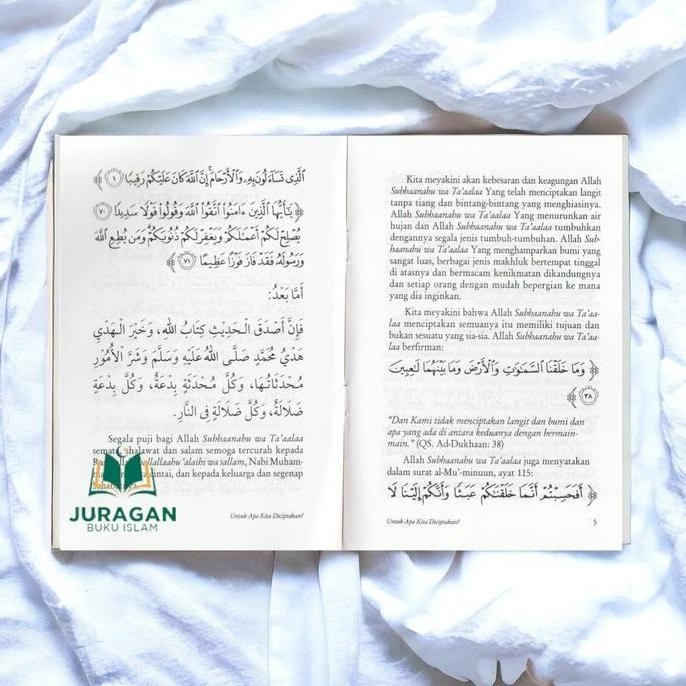 الَّذِي تَسَاءَلُونَ بِهِ وَالْأَرْحَامَ إِنَّ اللَّهَ كَانَ عَلَيْكُمْ رَقِيبًا ﴿١﴾
﴿ يَٰٓأَيُّهَا الَّذِينَ ءَامَنُوا اتَّقُوا اللَّهَ وَقُولُوا قَوْلًا سَدِيدًا ﴿٧٠﴾
يُصْلِحْ لَكُمْ أَعْمَٰلَكُمْ وَيَغْفِرْ لَكُمْ ذُنُوبَكُمْ وَمَن يُطِعِ اللَّهَ
وَرَسُولَهُ فَقَدْ فَازَ فَوْزًا عَظِيمًا ﴿٧١﴾
أَمَّا بَعْدُ:
فَإِنَّ أَصْدَقَ الْحَدِيْثِ كِتَابُ اللهِ، وَخَيْرَ الْهَدْيِ
هَدْيُ مُحَمَّدٍ صَلَّى اللهُ عَلَيْهِ وَسَلَّمَ وَشَرَّ الْأُمُوْرِ
مُحْدَثَاتُهَا، وَكُلَّ مُحْدَثَةٍ بِدْعَةٌ، وَكُلَّ بِدْعَةٍ
ضَلَالَةٌ، وَكُلَّ ضَلَالَةٍ فِى النَّارِ.
Segala puji bagi Allah Subhaanahu wa Ta'aalaa
shalawat dan salam semoga tercurah kepada
'alaihi wa sallam, Nabi Muham-
dan kepada keluarga dan segenap
JURAGAN
BUKU ISLAM
Untuk Apa Kita Diciptakan?
Kita meyakini akan kebesaran dan keagungan Allah
Subhaanahu wa Ta'aalaa Yang telah menciptakan langit
tanpa tiang dan bintang-bintang yang menghiasinya.
Allah Subhaanahu wa Ta'aalaa Yang menurunkan air
hujan dan Allah Subhaanahu wa Ta'aalaa tumbuhkan
dengannya segala jenis tumbuh-tumbuhan. Allah Sub-
haanahu wa Ta'aalaa Yang menghamparkan bumi yang
sangat luas, berbagai jenis makhluk bertempat tinggal
di atasnya dan bermacam kenikmatan dikandungnya
dan setiap orang dengan mudah bepergian ke mana
yang dia inginkan.
Kita meyakini bahwa Allah Subhaanahu wa Ta'aa-
laa menciptakan semuanya itu memiliki tujuan dan
bukan sesuatu yang sia-sia. Allah Subhaanahu wa Ta'aa-
laa berfirman:
﴿ وَمَا خَلَقْنَا السَّمَٰوَٰتِ وَالْأَرْضَ وَمَا بَيْنَهُمَا لَٰعِبِينَ
﴿٣٨﴾
"Dan Kami tidak menciptakan langit dan bumi dan
apa yang ada di antara keduanya dengan bermain-
main." (QS. Ad-Dukhaan: 38)
Allah Subhaanahu wa Ta'aalaa juga menyatakan
dalam surat al-Mu'-minuun, ayat 115:
﴿ أَفَحَسِبْتُمْ أَنَّمَا خَلَقْنَٰكُمْ عَبَثًا وَأَنَّكُمْ إِلَيْنَا لَا
Untuk Apa Kita Diciptakan? 5